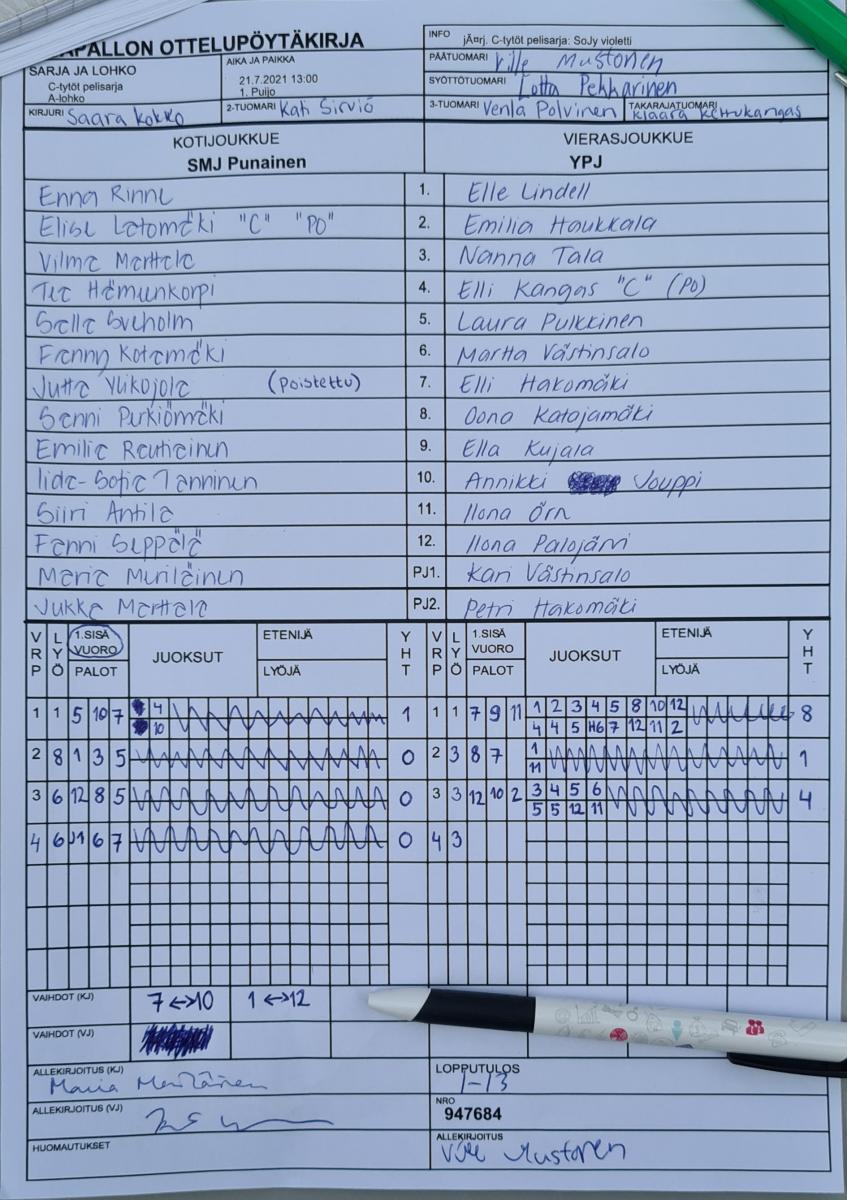 APALLON OTTELUPÖYTÄKIRJA
INFO jÄ¤rj. C-tytöt pelisarja: SoJy violetti
SARJA JA LOHKO
C-tytöt pelisarja
A-lohko
AIKA JA PAIKKA
21.7.2021 13:00
1. Puijo
PÄÄTUOMARI Ville Mustonen
SYÖTTÖTUOMARI Lotta Pekkarinen
KIRJURI Saara Kokko
2-TUOMARI Kati Sirviö
3-TUOMARI Venla Polvinen
TAKARAJATUOMARI Klaara Kettukangas
KOTIJOUKKUE
SMJ Punainen
VIERASJOUKKUE
YPJ
Enna Rinne 1. Elle Lindell
Elise Latomäki "C" "PO" 2. Emilia Haukkala
Vilma Marttala 3. Nanna Tala
Tea Hämeenkorpi 4. Elli Kangas "C" (PO)
Salla Sveholm 5. Laura Pulkkinen
Fanny Kotamäki 6. Martta Västinsalo
Jutta Ylikojola (Poistettu) 7. Elli Hakomäki
Sanni Purkiömäki 8. Oona Katajamäki
Emilia Rautiainen 9. Ella Kujala
Iida-Sofia Tanninen 10. Annikki Jouppi
Siiri Antila 11. Ilona Örn
Fanni Seppälä 12. Ilona Palojärvi
Maria Meriläinen PJ1. Kari Västinsalo
Jukka Marttala PJ2. Petri Hakomäki
VRP LYÖ 1.SISÄ VUORO PALOT JUOKSUT ETENIJÄ LYÖJÄ YHT VRP LYÖ 1.SISÄ VUORO PALOT JUOKSUT ETENIJÄ LYÖJÄ YHT
1 1 5 10 7 4 1 1 1 7 9 11 1 2 3 4 5 8 10 12 8
10 4 4 5 H6 7 12 11 2
2 8 1 3 5 0 2 3 8 7 1 1
11
3 6 12 8 5 0 3 3 12 10 2 3 4 5 6 4
5 5 12 11
4 6 J1 6 7 0 4 3
VAIHDOT (KJ) 7↔10 1↔12
VAIHDOT (VJ)
ALLEKIRJOITUS (KJ) Maria Meriläinen
LOPPUTULOS
1-13
ALLEKIRJOITUS (VJ)
NRO
947684
HUOMAUTUKSET
ALLEKIRJOITUS
Ville Mustonen